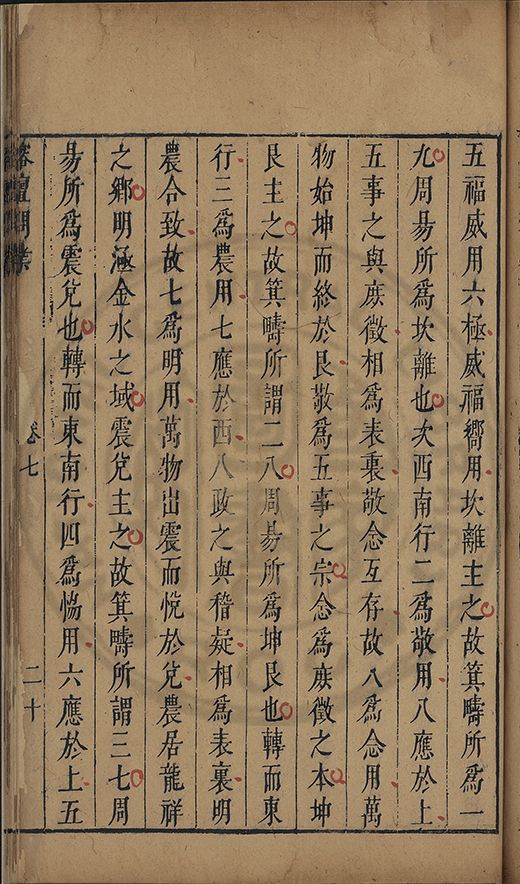 五福威用六極威福嚮用坎離主之故箕疇所爲一
九周易所爲坎離也次西南行二爲敬用八應於上
五事之與庻徵相爲表裏敬念互存故八爲念用萬
物始坤而終於艮敬爲五事之宗念爲庻徵之本坤
艮主之故箕疇所謂二八周易所爲坤艮也轉而東
行三爲農用七應於西八政之與稽疑相爲表裏明
農合致故七爲明用萬物出震而悅於兌農居龍祥
之鄉明涵金水之域震兌主之故箕疇所謂三七周
易所爲震兌也轉而東南行四爲恊用六應於上五
卷七
二十